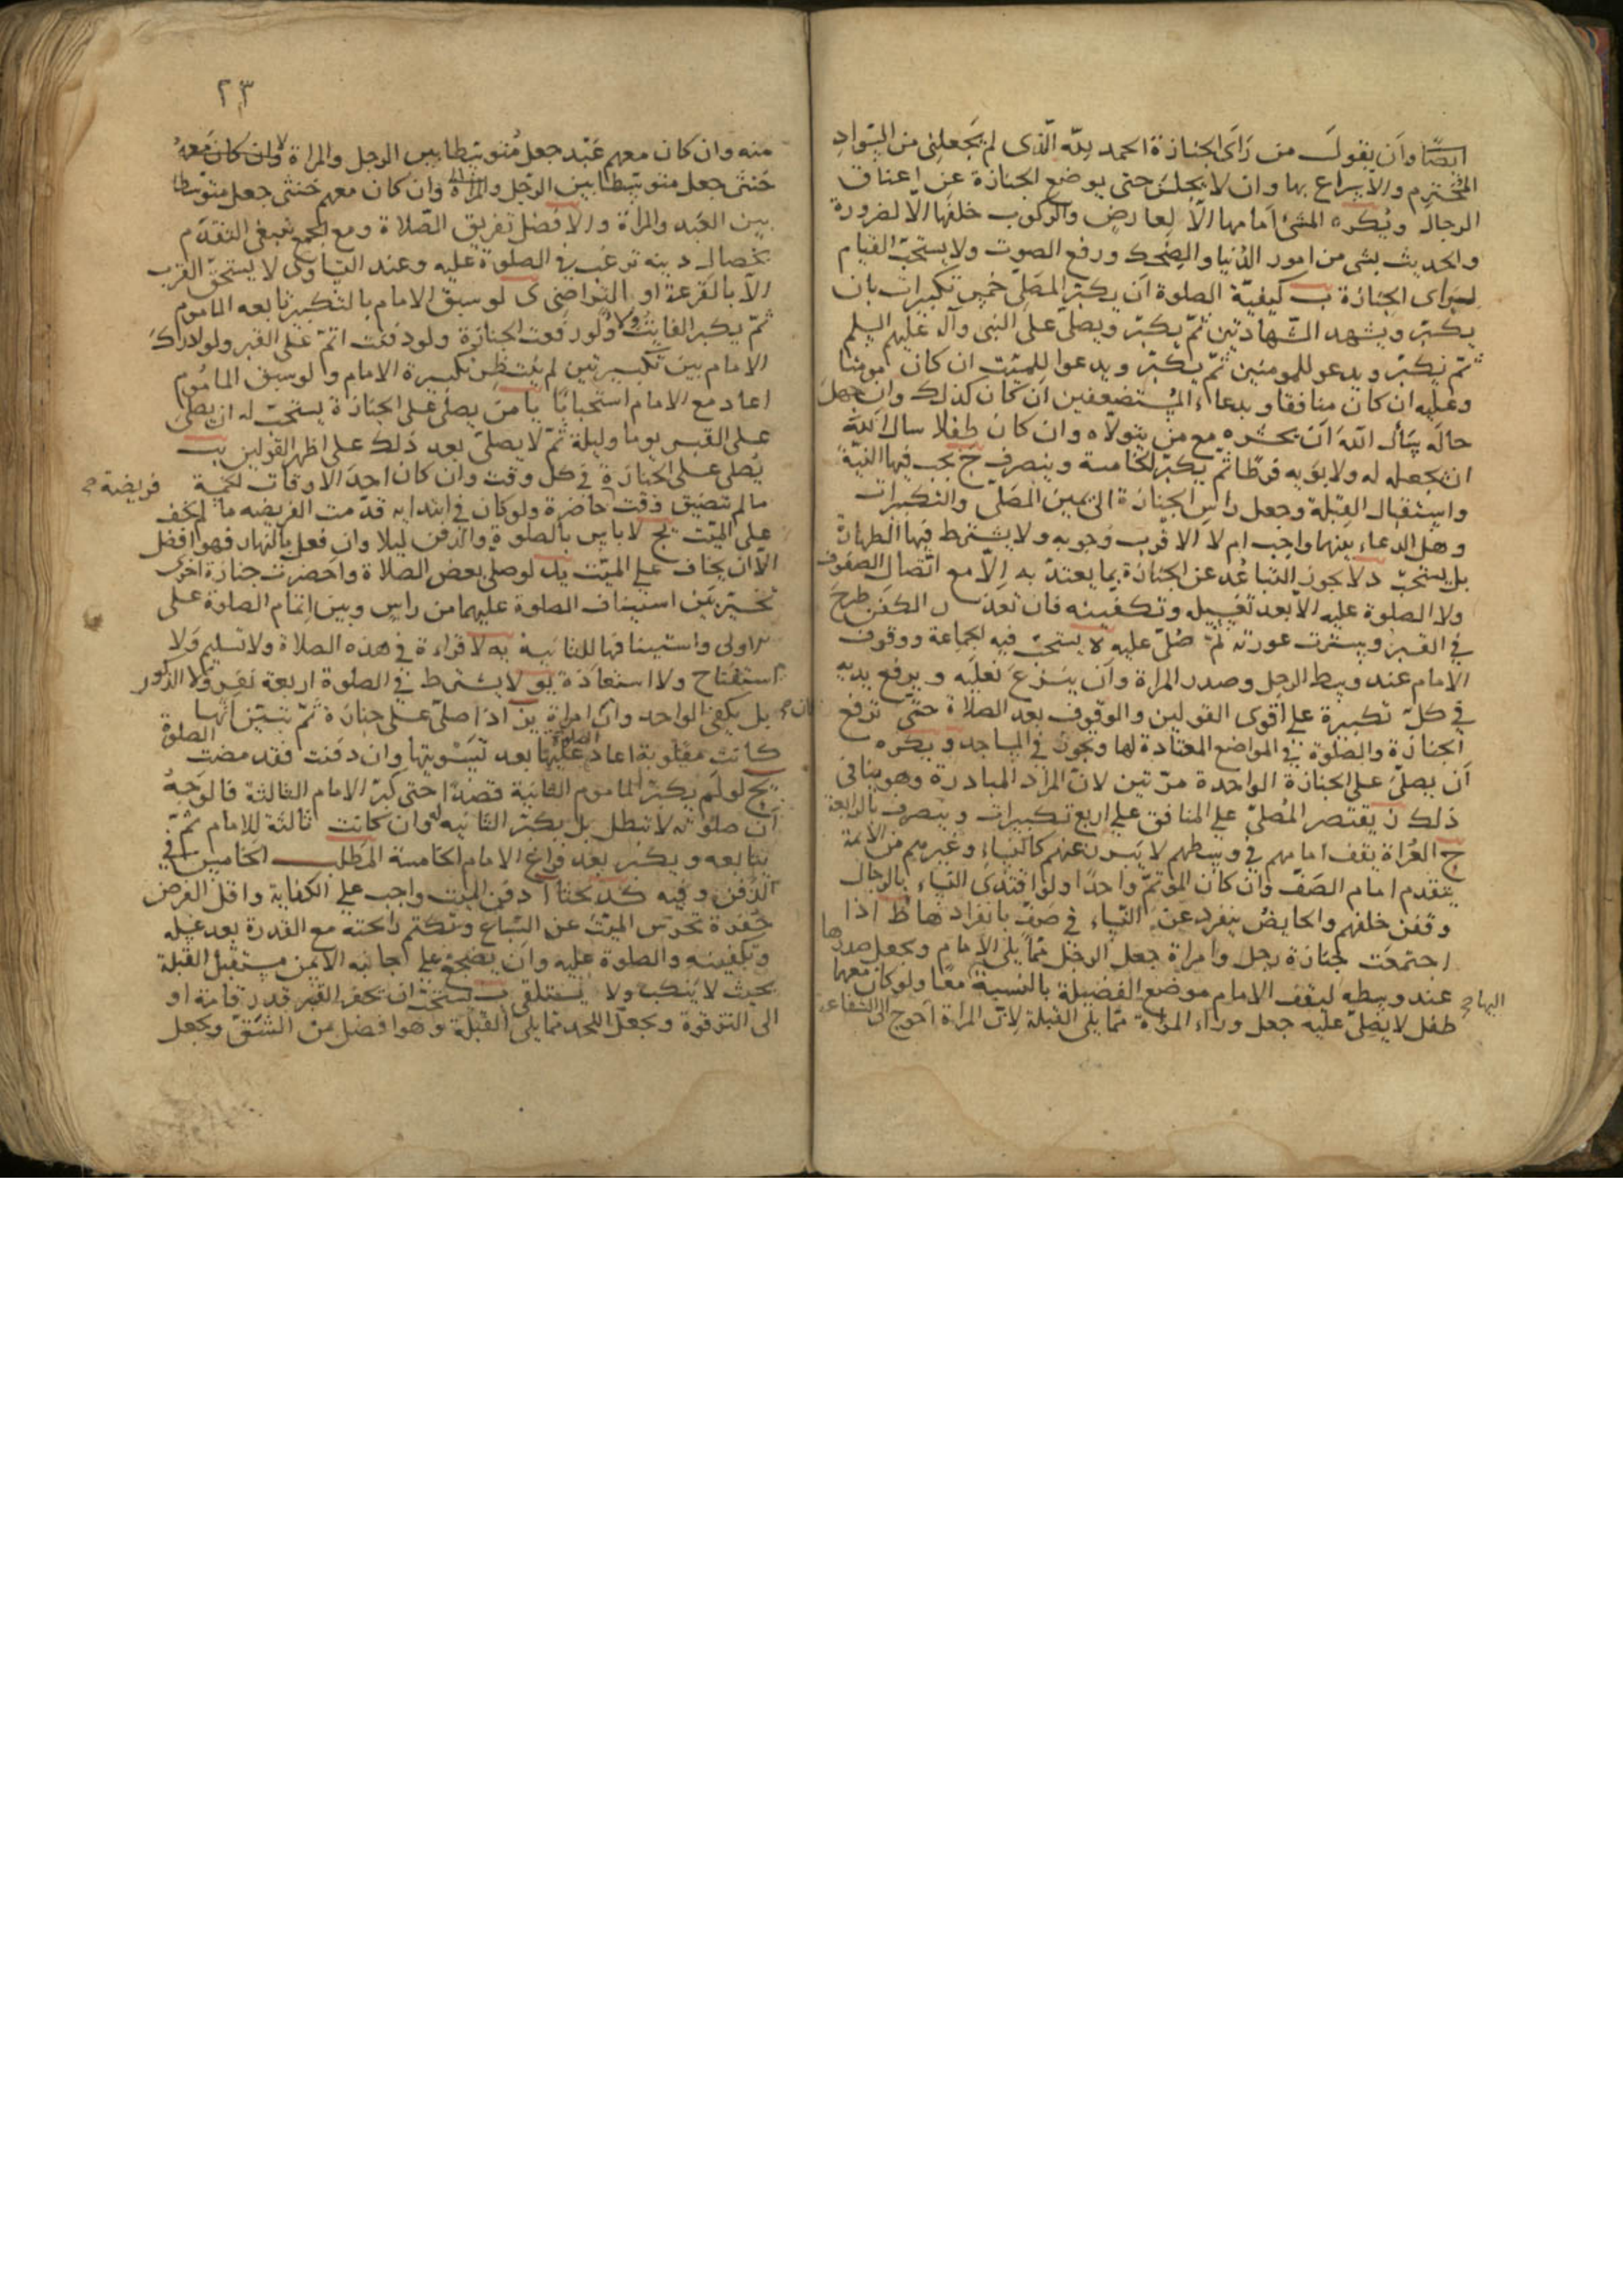 ايضًا وان يقول من رأى الجنازة الحمد لله الذى لم يجعلنى من السواد
المخترم والاسراع بها وان لا يجلس حتى يوضع الجنازة عن اعناق
الرجال ويكره المشى امامها الا لعارض والركوب خلفها الا لضرورة
والحديث بشى من امور الدنيا والضحك ورفع الصوت ولا يستحب القيام
لمن راى الجنازة ب كيفية الصلوة ان يكبر المصلى خمس تكبيرات بان
يكبر ويشهد الشهادتين ثم يكبر ويصلى على النبى وآله عليهم السلم
ثم يكبر ويدعو للمومنين ثم يكبر ويدعوا للميت ان كان مومنا
وعليه ان كان منافقا وبدعاء المستضعفين ان كان كذلك وان جهل
حاله يسأل الله ان يحشره مع من يتولاه وان كان طفلا سال الله
ان يجعله له ولابويه فرطا ثم يكبر الخامسة وينصرف ج يجب فيها النية
واستقبال القبلة وجعل راس الجنازة الى يمين المصلى والتكبيرات
وهل الدعاء بينها واجب ام لا الاقرب وجوبه ولا يشترط فيها الطهارة
بل يستحب د لا يجوز التباعد عن الجنازة بما يعتد به الا مع اتصال الصفوف
ولا الصلوة عليه الا بعد تغسيله وتكفينه فان تعذر الكفن طرح
فى القبر وسترت عورته ثم صلى عليه ه يستحب فيه الجماعة ووقوف
الامام عند وسط الرجل وصدر المراة وان ينزع نعليه ويرفع يديه
فى كل تكبيرة على اقوى القولين والوقوف بعد الصلاة حتى ترفع
الجنازة والصلوة فى المواضع المعتادة لها ويجوز فى المساجد ويكره
ان يصلى على الجنازة الواحدة مرتين لان المراد المبادرة وهو ينافى
ذلك ز يقتصر المصلى على المنافق على اربع تكبيرات وينصرف بالرابعة
ح العراة يقف امامهم فى وسطهم لا يبرز عنهم كالنساء وغيرهم من الائمة
يتقدم امام الصف وان كان الموتم واحدا ولو اقتدى النساء بالرجال
وقفن خلفهم والحايض ينفرد عن النساء فى صف بانفرادها ط اذا
اجتمعت جنازة رجل وامراة جعل الرجل مما يلى الامام ويجعل صدرها
عند وسطه ليقف الامام موضع الفضيلة بالنسبة اليهما معا ولو كان معهما
طفل لا يصلى عليه جعل وراء المراة مما يلى القبلة لان المراة احوج الى الشفاعة
٢٣
منه وان كان معهم عبد جعل متوسطا بين الرجل والمراة وان كان معه
خنثى جعل متوسطا بين الرجل والمراة وان كان معهم خنثى جعل متوسطا
بين العبد والمراة والافضل تفريق الصلاة ومع الجمع ينبغى التقدم
بخصال دينه ترغب فى الصلوة عليه وعند التساوى لا يستحق القرب
الا بالقرعة او التراضى ى لو سبق الامام بالتكبير تابعه الماموم
ثم يكبر الفايت ولاء ولو رفعت الجنازة ولو دفنت اتم على القبر ولو ادرك
الامام بين تكبيرتين لم ينتظر تكبيرة الامام ولو سبق الماموم
اعاد مع الامام استحبابا يا من لم يصلى على الجنازة يستحب له ان يصلى
على القبر يوما وليلة ثم لا يصلى بعد ذلك على اظهر القولين يب
يصلى على الجنازة فى كل وقت وان كان احد الاوقات الخمسة
ما لم تتضيق وقت فريضة حاضرة ولو كان فى ابتدايه قدمت الفريضه ما لم يخف
على الميت يج لا باس بالصلوة والدفن ليلا وان فعل بالنهار فهو افضل
الا ان يخاف على الميت يد لو صلى بعض الصلاة واحضرت جنازة اخرى
تخير بين استيناف الصلوة عليهما من راس وبين اتمام الصلوة على
الاولى واستينافها للثانية يه لا قراءة فى هذه الصلاة ولا تسليم ولا
استفتاح ولا استعاذة يو لا يشترط فى الصلوة اربعة نفر ولا الذكور
بل يكفى الواحد وان كان امراة يز اذا صلى على جنازة ثم تبين انها
كانت مقلوبة اعاد الصلوة عليها بعد تسويتها وان دفنت فقد مضت الصلوة
يح لو لم يكبر الماموم الثانية قصدا حتى كبر الامام الثالثة فالوجه
ان صلوته لا تبطل بل يكبر الثانيه له وان كانت ثالثة للامام ثم
يتابعه ويكبر بعد فراغ الامام الخامسة المطلب الخامس فى
الدفن وفيه كد بحثا ا دفن الميت واجب على الكفاية واقل الفرض
حفرة تحرس الميت عن السباع وتكتم رائحته مع القدرة بعد غسله
وتكفينه والصلوة عليه وان يضجع على جانبه الايمن مستقبل القبلة
بحيث لا ينكب ولا يستلقى ب يستحب ان يحفر القبر قدر قامة او
الى الترقوة ويجعل اللحد مما يلى القبلة وهو افضل من الشق ويجعل